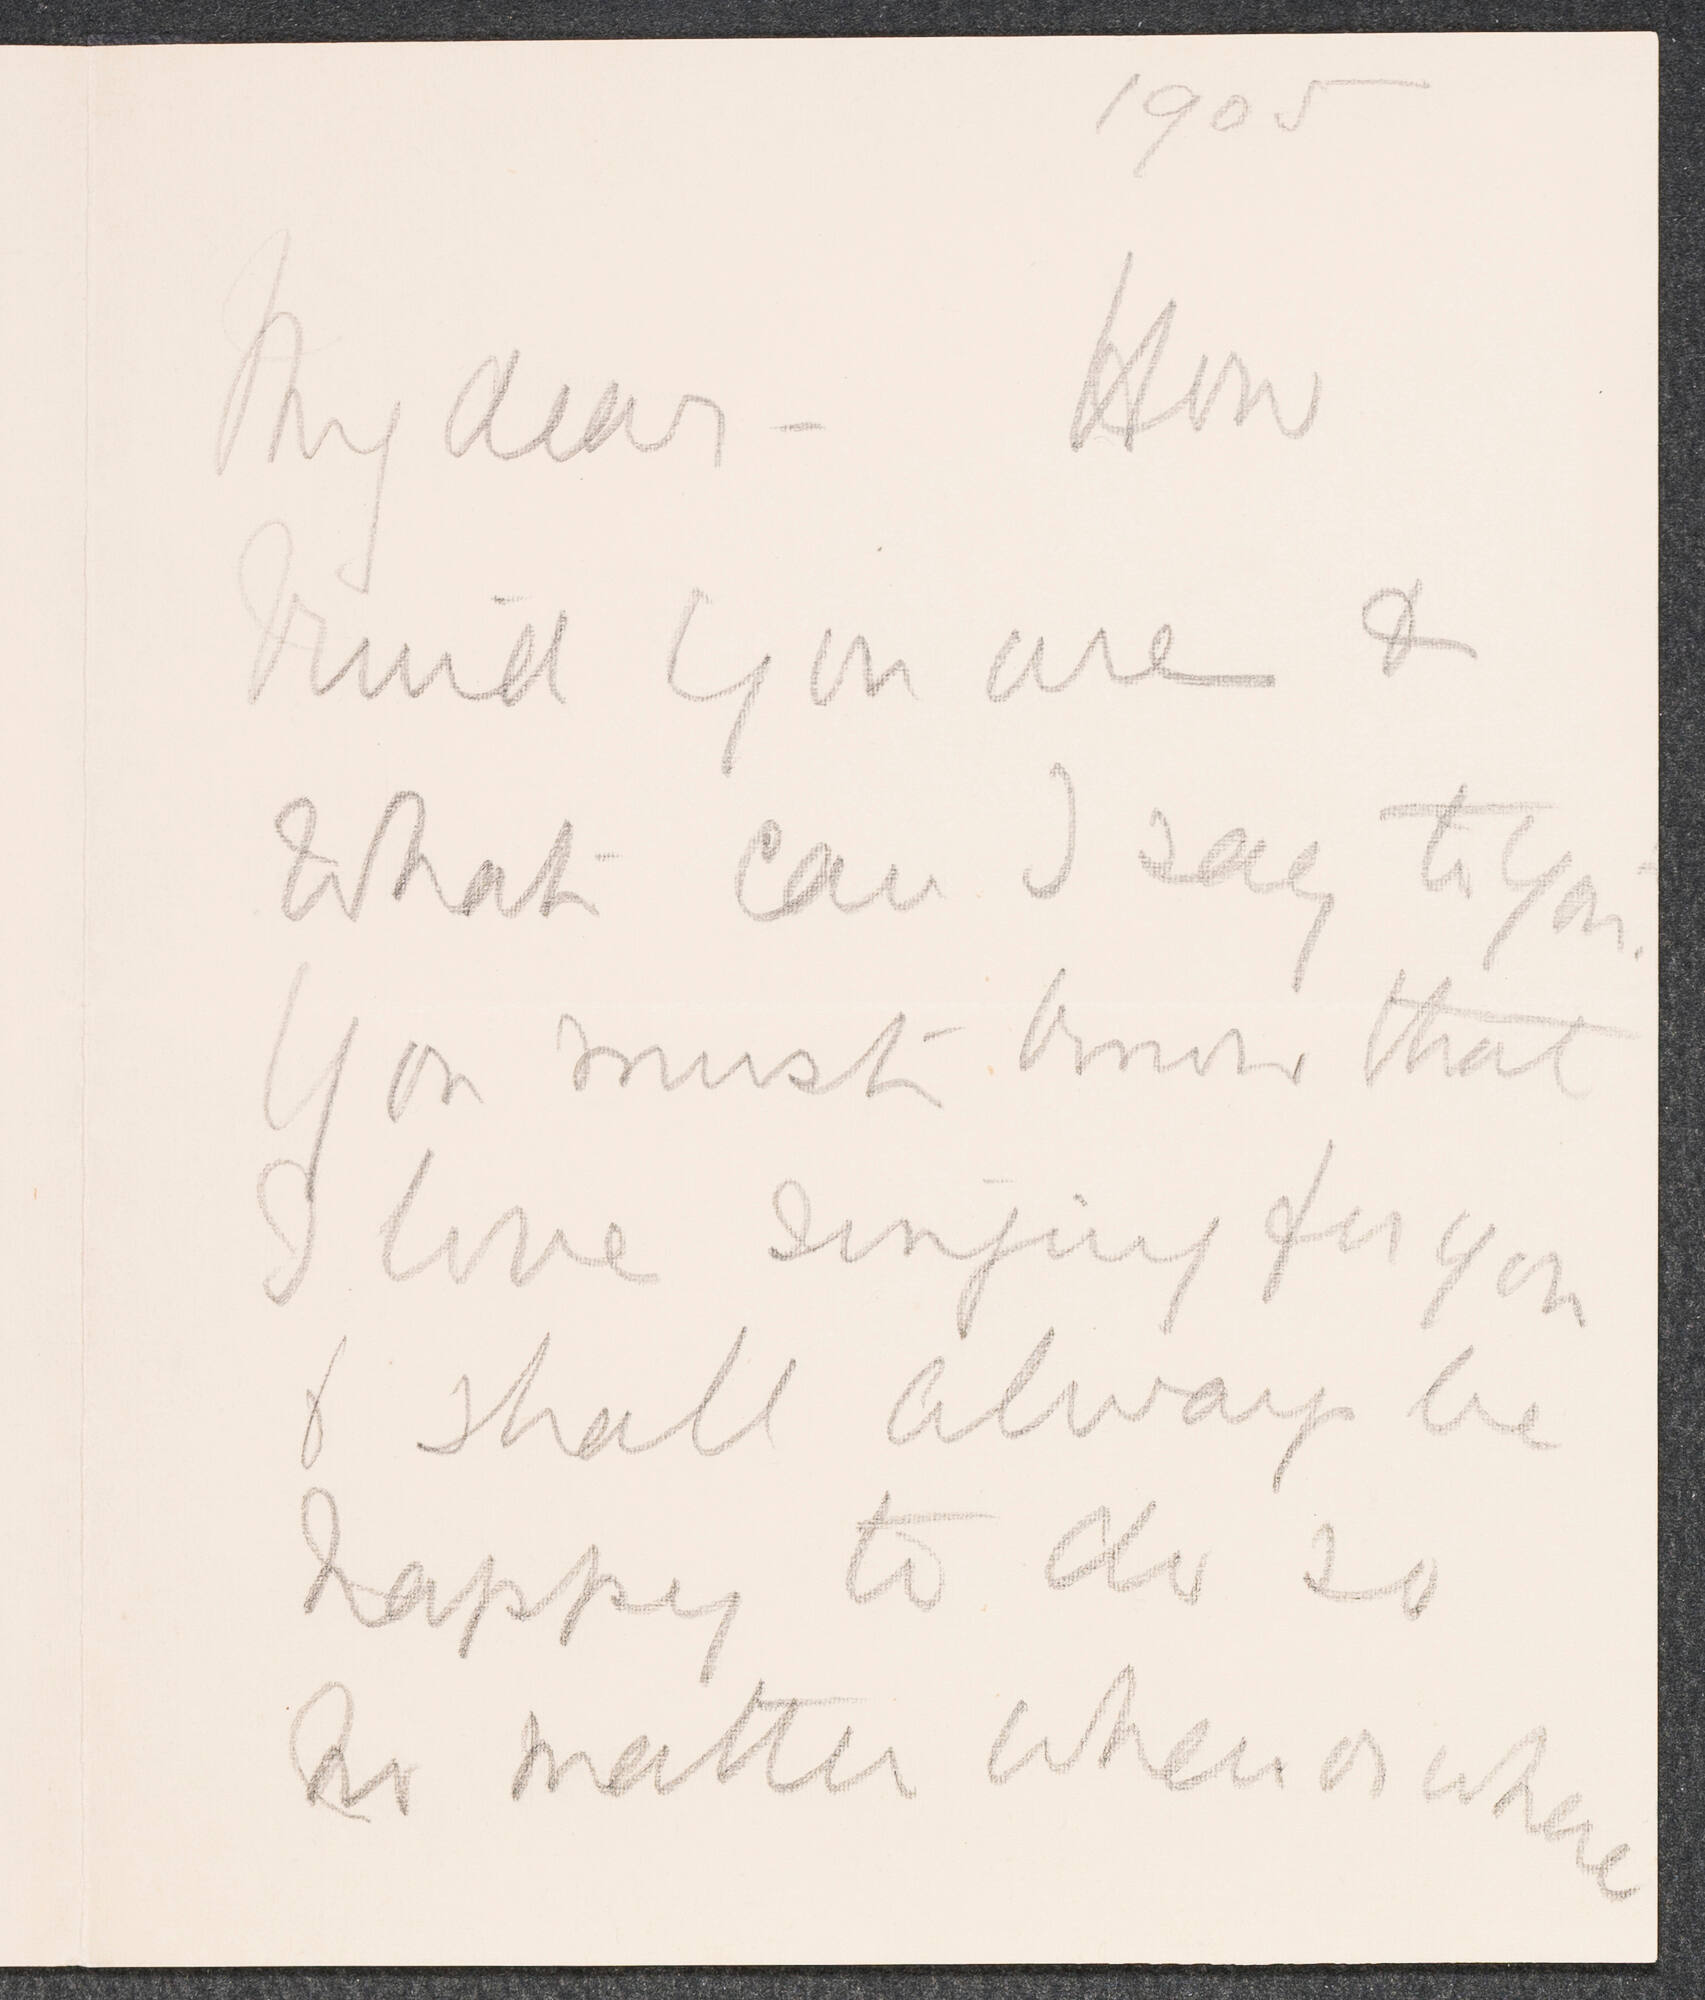 1905
My dear - How
Kind you are &
what can I say to you.
You must know that
I love singing for you
& shall always be
happy to do so
no matter when or where